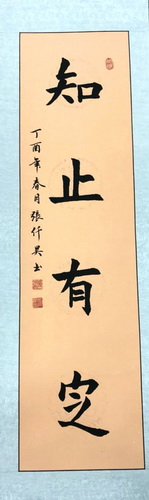 知止有定
丁酉年春月張仟昊书